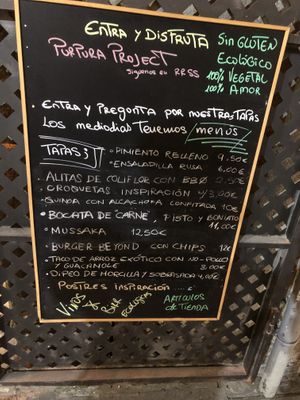 ENTRA Y DISFRUTA
PÚRPURA PROJECT
Síguenos en RRSS
SIN GLUTEN
ECOLÓGICO
100% VEGETAL
100% AMOR
ENTRA Y PREGUNTA POR NUESTRAS TAPAS
Los mediodías Tenemos menús
TAPAS
• PIMIENTO RELLENO 9,50€
• ENSALADILLA RUSA 6,00€
ALITAS DE COLIFLOR CON BBQ
CROQUETAS INSPIRACIÓN 4/8,00€
QUINOA CON ALCACHOFA CONFITADA 10€
• BOCATA DE "CARNE", PISTO Y BONIATO
11,00€
• MUSSAKA 12,50€
• BURGER BEYOND CON CHIPS 12€
• TACO DE ARROZ EXÓTICO CON NO-POLLO
Y GUACAMOLE 8,00€
• DIPEO DE MORCILLA Y SOBRASADA 4,00€
• POSTRES INSPIRACIÓN .... €
VINOS Y BIRR ECOLÓGICAS
ARTÍCULOS
de TIENDA